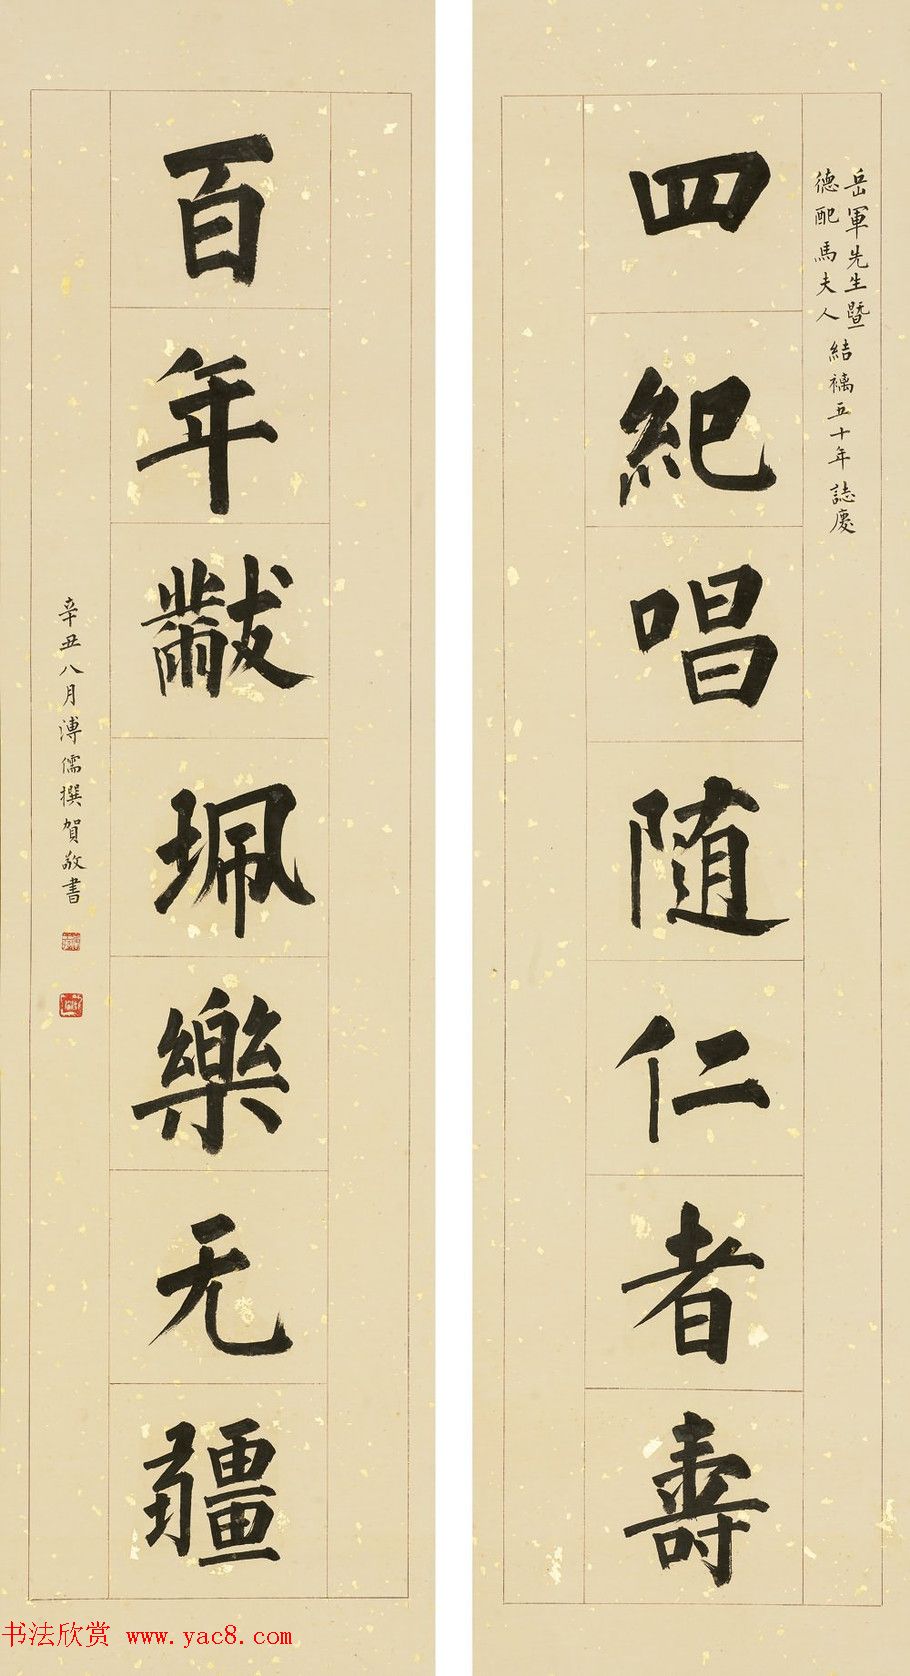 岳軍先生暨
德配馬夫人
結褵五十年誌慶
四紀唱随仁者壽
百年黻珮樂无疆
辛丑八月溥儒撰賀敬書
书法欣赏 www.yac8.com